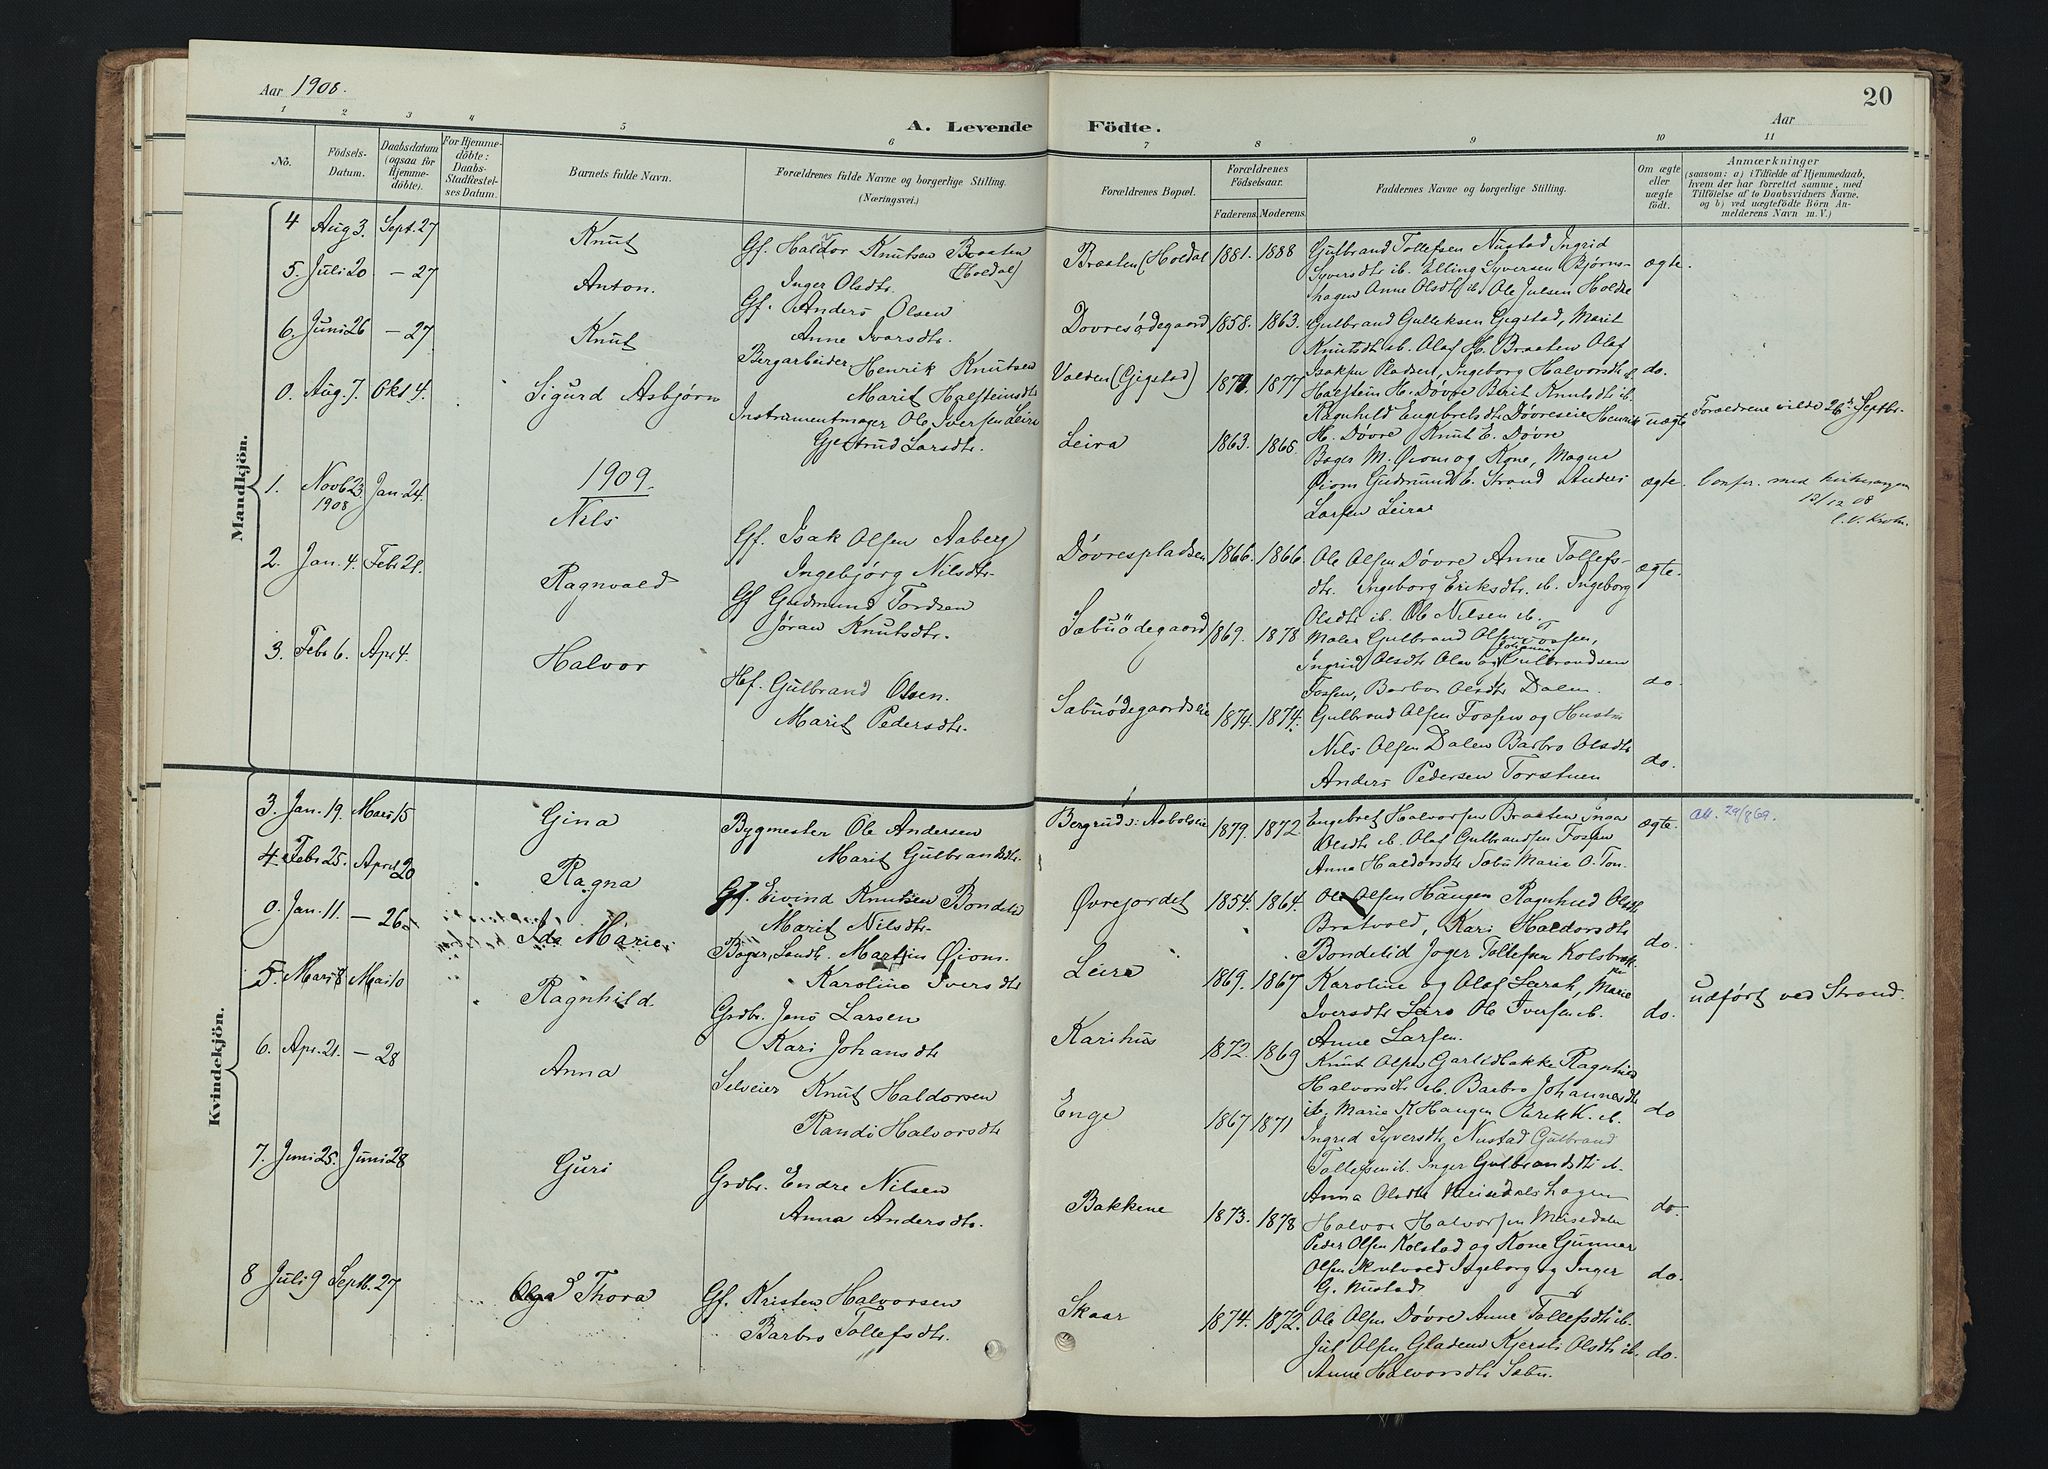 Aar 1908.
20
A. Levende Födte.
Aar
1 2 3 4 5 6 7 8 9 10 11
No.
Födsels-Datum.
Daabsdatum (ogsaa for Hjemmedöbte).
For Hjemmedöbte: Daabs-Stadfæstelses Datum.
Barnets fulde Navn.
Forældrenes fulde Navne og borgerlige Stilling.
(Næringsvei.)
Forældrenes Bopæl.
Forældrenes Födselsaar.
Faderens. Moderens.
Faddernes Navne og borgerlige Stilling.
Om ægte eller uægte födt.
Anmærkninger
(saasom: a) i Tilfælde af Hjemmedaab, hvem der har forrettet samme, med Tilföielse af to Daabsvidners Navne, og b) ved uægtefödte Börn Anmelderens Navn m. V.)
Mandkjön.
4 Aug 3. Sept. 27 Knut
Gf. Haldor Knutsen Braaten (Holdal)
Inger Olsdtr.
Braaten (Holdal 1881. 1888
Gulbrand Tollefsen Nustad Ingrid
Syversdtr ib. Elling Syversen Bjørns-
hagen Anne Olsdtr ib. Ole Julsen Holdal
ægte.
5. Juli 20 — 27 Anton.
Gf. Anders Olsen
Anne Ivarsdtr.
Dovresødegaard 1858. 1863.
Gulbrand Gulleksen Gigstad, Marit
Knutsdtr ib. Olaf H. Braaten Olaf
do.
6. Juni 26 — 27 Knut
Bergarbeider Henrik Knutsen
Marit Halsteinsdtr
Volden (Gigstad) 1877
Halstein H. Døvre Berit Knutsdtr ib.
Ragnhild Engebretsdtr Døvreseie Henrik
H. Døvre Knut E. Døvre
uægte
Forældrene vilde 26de Septbr.
0. Aug. 7. Okt 4. Sigurd Asbjørn
Instrumentmager Ole Iversen Leira
Gjertrud Larsdtr.
Leira 1863. 1865
Bager M. Øiom og Kone, Magna
Øiom Gudmund E. Strand Anders
Larsen Leira
ægte.
Confr. med kirkesangen
13/12 08
1909.
1. Novb 23. 1908 Jan 24. Nils
Gf. Isak Olsen Aaberg
Ingebjørg Nilsdtr.
Døvrespladsen 1866. 1866.
Ole Olsen Døvre Anne Tollefs-
dtr. Ingeborg Eriksdtr. ib. Ingeborg
Olsdtr ib. Ole Nilsen ib.
ægte.
2. Jan. 4. Feb. 21. Ragnvald
Gf Gudmund Tordsen
Jøran Knutsdtr.
Sæbuødegaard 1869. 1878
Maler Gulbrand Olsen Fossen,
Ingrid Olsdtr Olav og Johannes Gulbrandsen
Fossen, Barbro Olsdtr Dalen.
do.
3. Feb. 6. Apr 4. Halvor
Hf. Gulbrand Olsen.
Marit Pedersdtr.
Sæbuødegaardseie 1874. 1874.
Gulbrand Olsen Fossen og Hustru
Nils Olsen Dalen Barbro Olsdtr
Anders Pedersen Torstuen
do.
Kvindekjön.
3. Jan. 19. Mars 15 Gina
Bygmester Ole Andersen
Marit Gulbrandsdtr.
1879. 1872.
Engebret Halvorsen Braaten Inga
Olsdtr ib. Olaf Gulbrandsen Fossen
Anna Haldorsdtr Sæbu Maria O. Ton.
ægte.
4. Febr 25. April 20 Ragna
Gf. Eivind Knutsen Bondelid
Marit Nilsdtr.
Øvrejordet 1854. 1864.
Ole Olsen Haugen Ragnhild Olsdtr
Bratvold, Kari Haldorsdtr
Bondelid Joger Tollefsen
do.
0. Jan. 11. — 26. Ida Marie
Bager, Landh. Martin Øiom.
Karoline Iversdtr
Leira 1869. 1867
Karoline og Olaf Sarah, Marie
Iversdtr Lara Ole Iversen ib.
Anne Larsen.
do.
udført ved Strand.
5. Mars 8 Mai 10 Ragnhild.
Grdbr. Jens Larsen
Kari Johansdtr
Karihus 1872. 1869
Knut Olsen Garlidbakke Ragnhild
Halvorsdtr ib. Barbro Johannesdtr
ib. Marie K Haugen Erik K. ib.
do
6. Apr. 21. — 28 Anna
Selveier Knut Haldorsen
Randi Halvorsdtr
Enge 1867 1871
Ingrid Syversdtr Nustad Gulbrand
Tollefsen ib. Inger Gulbrandsdtr ib.
Anna Olsdtr
7. Juni 25. Juni 28 Guri
Grdbr. Endre Nilsen
Anna Andersdtr.
Bakkene 1873. 1878
Halvor Halvorsen
Peder Olsen Kolstad og Kone Gunnar
Olsen Ingeborg og Inger
G. Nustad.
do.
do.
8 Juli 9 Septb. 27 Olga Thora
Gf. Kristen Halvorsen
Barbro Tollefsdtr.
Skaar 1874. 1872.
Ole Olsen Døvre Anne Tollefsdtr ib.
Jul Olsen Gladene Kjersti Olsdtr ib.
Anne Halvorsdtr Sæbu.
do.